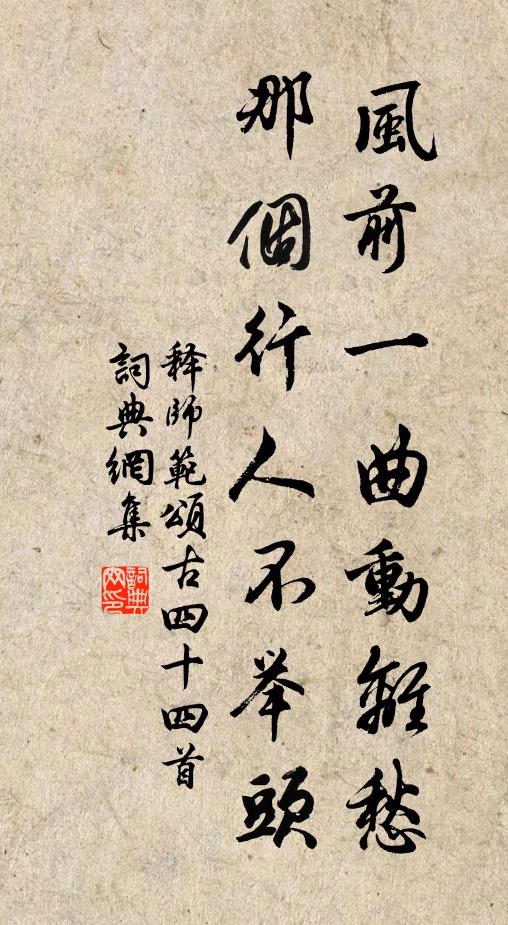 風前一曲動離愁
那個行人不举頭
释師範頌古四十四首
詞典網集
詞典网印